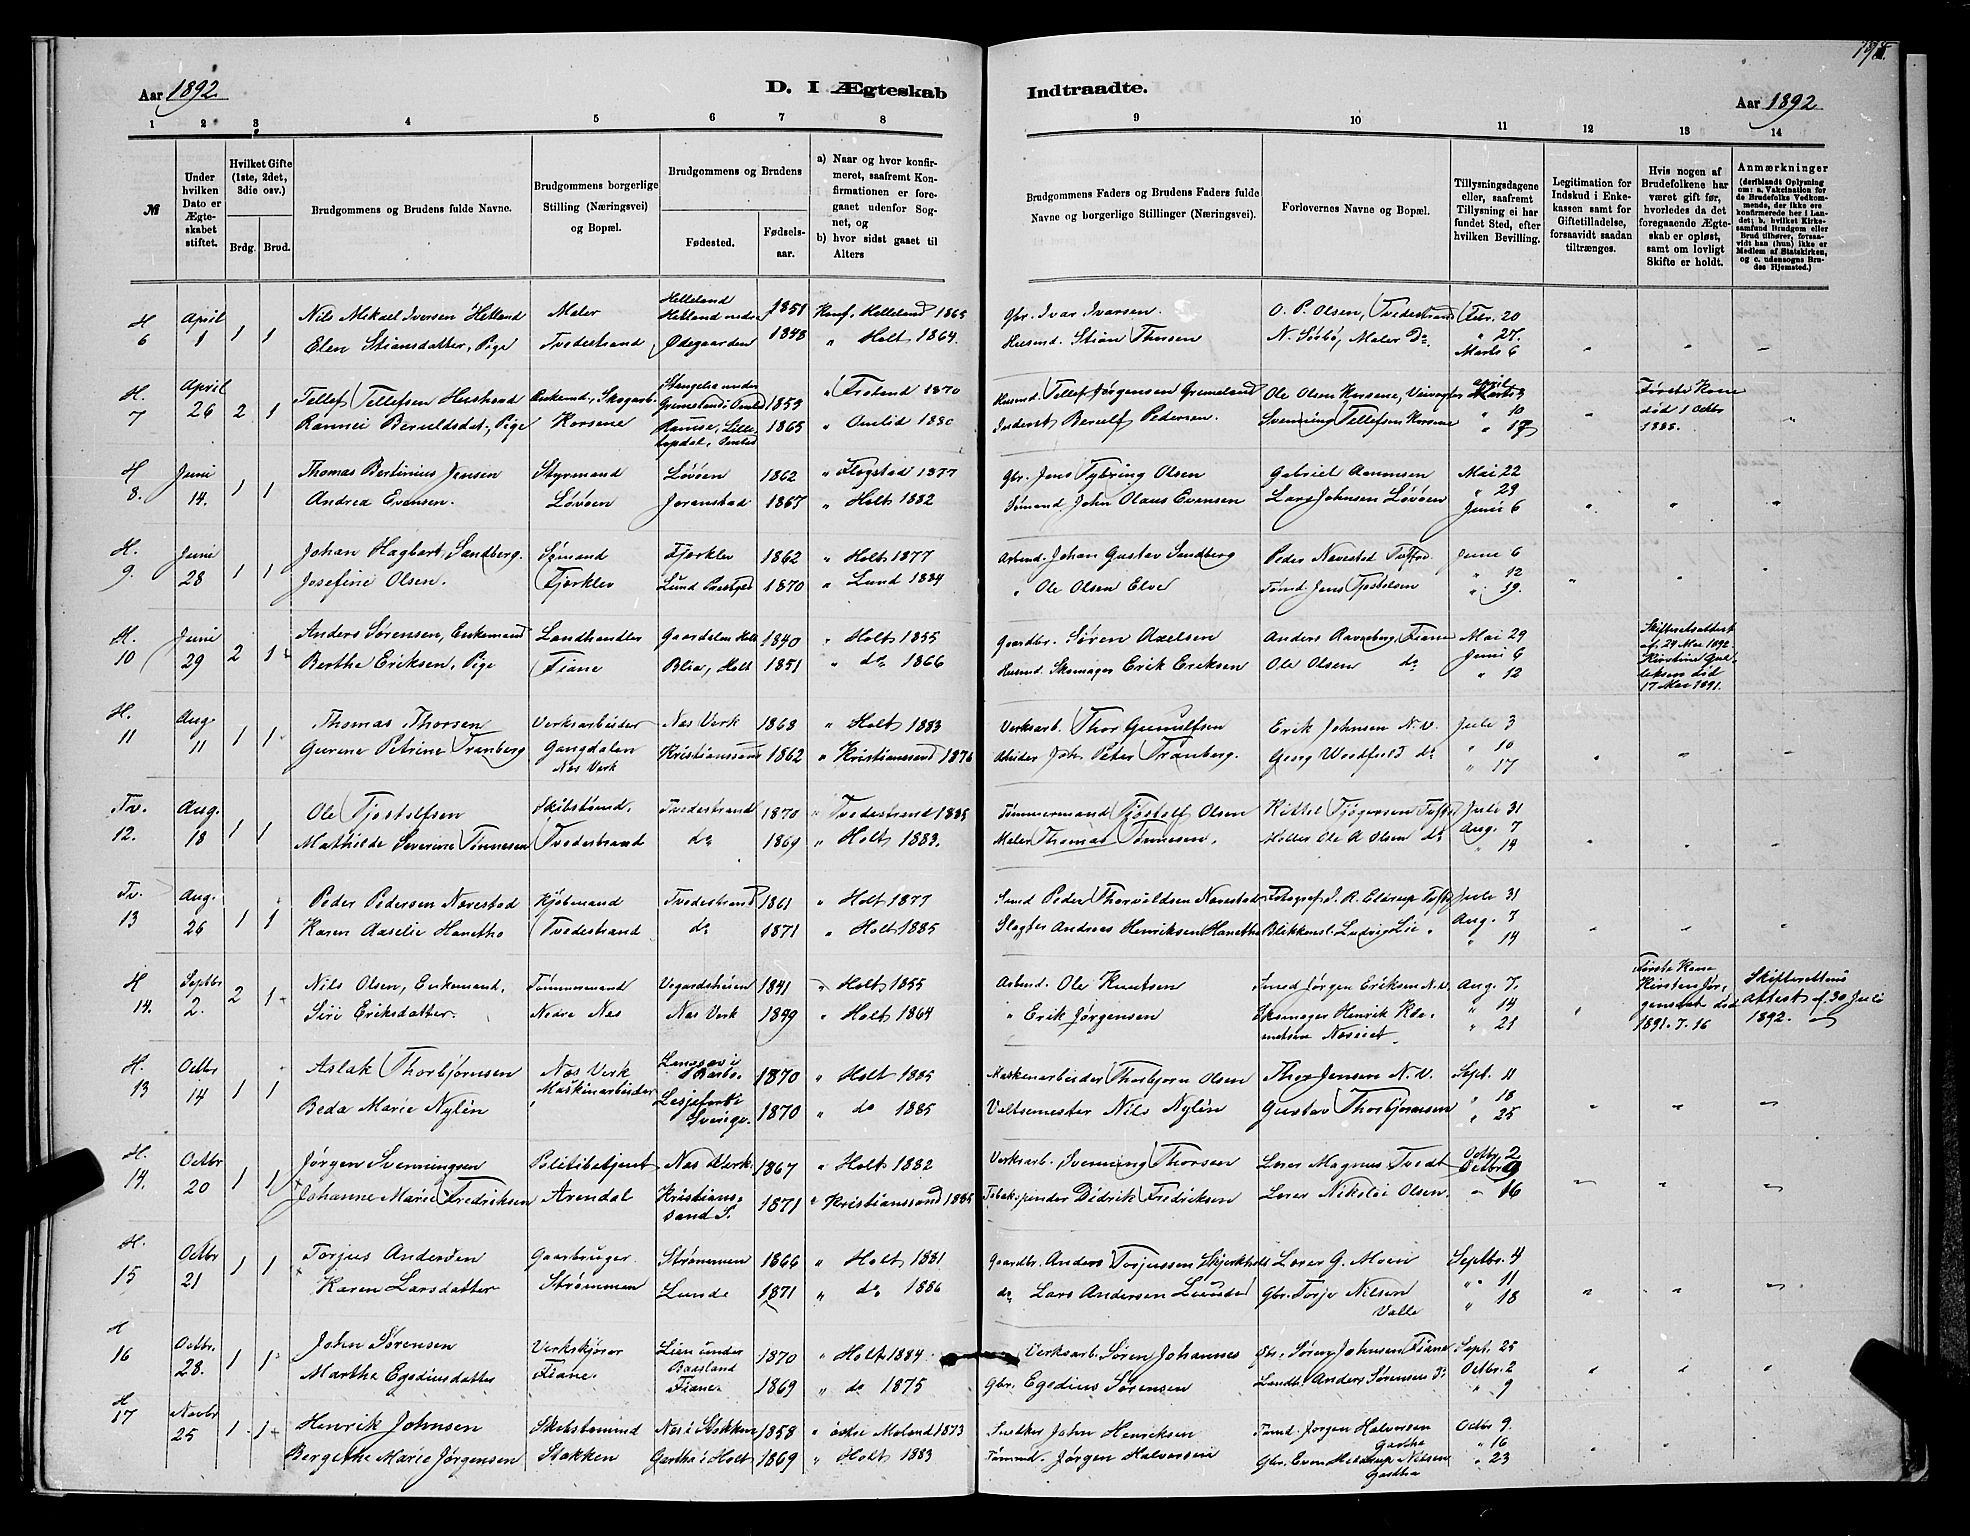 171.
Aar 1892.
D. I Ægteskab
Indtraadte.
Aar 1892
1 2 3 4 5 6 7 8
9 10 11 12 13 14
№
Under hvilken Dato er Ægteskabet stiftet.
Hvilket Gifte (1ste, 2det, 3die osv.)
Brdg. Brud.
Brudgommens og Brudens fulde Navne.
Brudgommens borgerlige Stilling (Næringsvei) og Bopæl.
Brudgommens og Brudens
Fødested. Fødselsaar.
a) Naar og hvor konfirmeret, saafremt Konfirmationen er foregaaet udenfor Sognet, og
b) hvor sidst gaaet til Alters
Brudgommens Faders og Brudens Faders fulde Navne og borgerlige Stillinger (Næringsvei).
Forlovernes Navne og Bopæl.
Tillysningsdagene eller, saafremt Tillysning ei har fundet Sted, efter hvilken Bevilling.
Legitimation for Indskud i Enkekassen samt for Giftetilladelse, forsaavidt saadan tiltrænges.
Hvis nogen af Brudefolkene har været gift før, hvorledes da det foregaaende Ægteskab er opløst, samt om lovligt Skifte er holdt.
Anmærkninger
(deriblandt Oplysning om: a. Vakcination for de Brudefolks Vedkommende, der ikke ere konfirmerede her i Landet; b. hvilket Kirkesamfund Brudgom eller Brud tilhører, forsaavidt han (hun) ikke er Medlem af Statskirken, og c. udensogns Brudes Hjemsted.)
H 6 April 1 1 1 Nils Mikael Iversen Hetland Maler Helleland Hetland nedre 1851 Konf. Helleland 1865 Gbr. Ivar Ivarsen. O. P. Olsen, Tvedestrand Febr. 20
Elen Stiansdatter, Pige Tvedestrand Ødegaarden 1848 " Holt 1864. Husmd. Stian Thorsen N. Sørbø, Maler Do " 27.
Marts 6 " " "
H. 7 April 26 2 1 Tellef Tellefsen Enkemd., Skogarb. 1853 " Froland 1870 Husmd. Tellef Jørgensen Grimeland Ole Olsen Korsene, april 3 Første Kone
Beruldsdat., Pige Korsene 1865 " Omlid 1880 Inderst Berulf Pedersen. Svenning Tellefsen Korsene " 10 død 1 Octbr
" 17 " 1888. "
H 8. Juni 14. 1 1 Thomas Bertinius Jensen Styrmand Løvøen 1862 " Flosstad 1877 Gbr. Jens Tybring Olsen Gabriel Aanonsen Mai 22
Andrea Evensen. Løvøen Joranstad 1867 " Holt 1882 Sømand John Olaus Evensen Lars Johnsen Løvøen " 29
Juni 6 " " "
H. 9. Juni 28 1 1 Johan Hagbart Sandberg. Sømand Fjærklev 1862 " Holt 1877 Arbeid. Johan Gustav Sandberg Peder Navestad Juni 6
Josefine Olsen. Fjærklev Lund 1870 " Lund 1884 " Ole Olsen Elve Tømd. Jens Tjostelsen " 12
" 19. " " "
H. 10 Juni 29 2 1 Anders Sørensen, Enkemand Landhandler Gaardalen Holt 1840 " Holt 1855 Gaardbr. Søren Axelsen Anders Ravneberg, Fiane Mai 29 Skifteretsattest
Berthe Eriksen, Pige Fiane Blia, Holt 1851 " do 1866 Husmd. Skomager Erik Eriksen Ole Olsen do Juni 6 af 24 Mai 1892.
" 12 Kirstine død
17 Mai 1891.
H. 11 Aug. 11 1 1 Thomas Thorsen Verksarbeider Næs Verk 1868 " Holt 1883 Verksarb. Thor Gunulfsen Erik Johnsen N. V. Juli 3
Gurine Petrine Tranberg Gangdalen Kristianssand 1862 " Kristianssand 1876 Arbeider Joh. Peter Tranberg. Georg Woodfield do " 10
Næs Verk " 17 " " "
Tv. 12. Aug. 18 1 1 Ole Tjostelfsen Skibstømd. Tvedestrand 1870 " Tvedestrand 1885 Tømmermand Tjostelf Olsen Kittel Juli 31
Mathilde Severine Tønnesen Tvedestrand do 1869 " Holt 1883. Maler Thomas Tønnesen. Ole A Olsen do Aug. 7
" 14 " " "
Tv. 13 Aug. 26 1 1 Peder Pedersen Navestad Kjøbmand Tvedestrand 1861 " Holt 1877 Smed Peder Thorvaldsen Navestad Fotograf J. R. Juli 31
Karen Aaselie Hanetho Tvedestrand do 1871 " Holt 1885 Slagter Andreas Henriksen Hanetho Blikkensl. Ludvig Lie " Aug. 7
" 14 " " "
H 14. Septbr 2. 2 1 Nils Olsen, Enkemand. Tømmermand Vegardsheien 1841 " Holt 1855 Arbeid. Ole Knutsen Smed Jørgen Eriksen N. V. Aug. 7. Første Kone Skifterettens
Siri Eriksdatter. Nedre Næs Næs Verk 1849 " Holt 1864 " Erik Jørgensen Skomager Henrik " 14 Kirsten Jørgensdat død Attest af 30 Juli
" 21 " 1891. 7. 16 1892.
H. 13 Octbr 14 1 1 Aslak Thorbjørnsen Næs Verk Barbo. 1870 " Holt 1885 Maskenarbeider Thorbjørn Olsen Thor Jensen N. V. Sept. 11
Beda Marie Nylén Maskinarbeider Lesjeforts Sverige. 1870 " do 1885 Valsemester Nils Nylén Gustav Thorbjørnsen " 18
" 25 " " "
H. 14. Octbr 20 1 1 Jørgen Svenningsen Politibetjent Næs Verk 1867 " Holt 1882 Verksarb. Svenning Thorsen Lærer Magnus Tvedt Octbr. 2
Johanne Marie Fredriksen Arendal Kristianssand S. 1871 " Kristianssand 1885 Tobakspinder Didrik Fredriksen Lærer Nikolai Olsen. Octbr. 9
" 16 " " "
H. 15 Octbr 21 1 1 Torjus Andersen Gaardbruger Strømmen 1866 " Holt 1881 Gaardbr. Anders Torjussen Skjerkholt Lærer G. Moen Septbr. 4
Karen Larsdatter Strømmen Lunde 1871 " do 1886 do Lars Andersen Lunde Gbr. Torje Nilsen " 11
Valle " 18 " " "
H 16 Octbr. 28. 1 1 John Sørensen Verkskjører Lien under Baasland 1870 " Holt 1884 Verksarb. Søren Johannes Gbr. Søren Johnsen Fiane Sept. 25
Marthe Egediusdatter Fiane. Fiane 1869 " do 1875 Gbr. Egedius Sørensen Landh. Anders Sørensen Octbr. 2
" 9 " " "
H 17 Novbr 25 1 1 Henrik Johnsen Skibstømmd Næs i Stokken 1858 " østre Moland 1873 John Henriksen Tømd. Jørgen Halvorsen Octbr 9.
Bergethe Marie Jørgensen Stokken Gartha i Holt 1869 " Holt 1883 Tømmd. Jørgen Halvorsen Gartha " 16
Gbr. Even Nilsen " 23
Gartha " " "